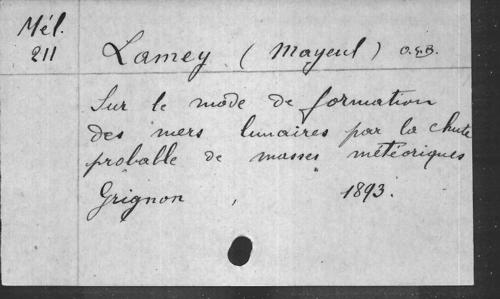 Mél.
211
Lamey (Mayeul) O.S.B.
Sur le mode de formation
des mers lunaires par la chute
probable de masses météoriques
Grignon, 1893.